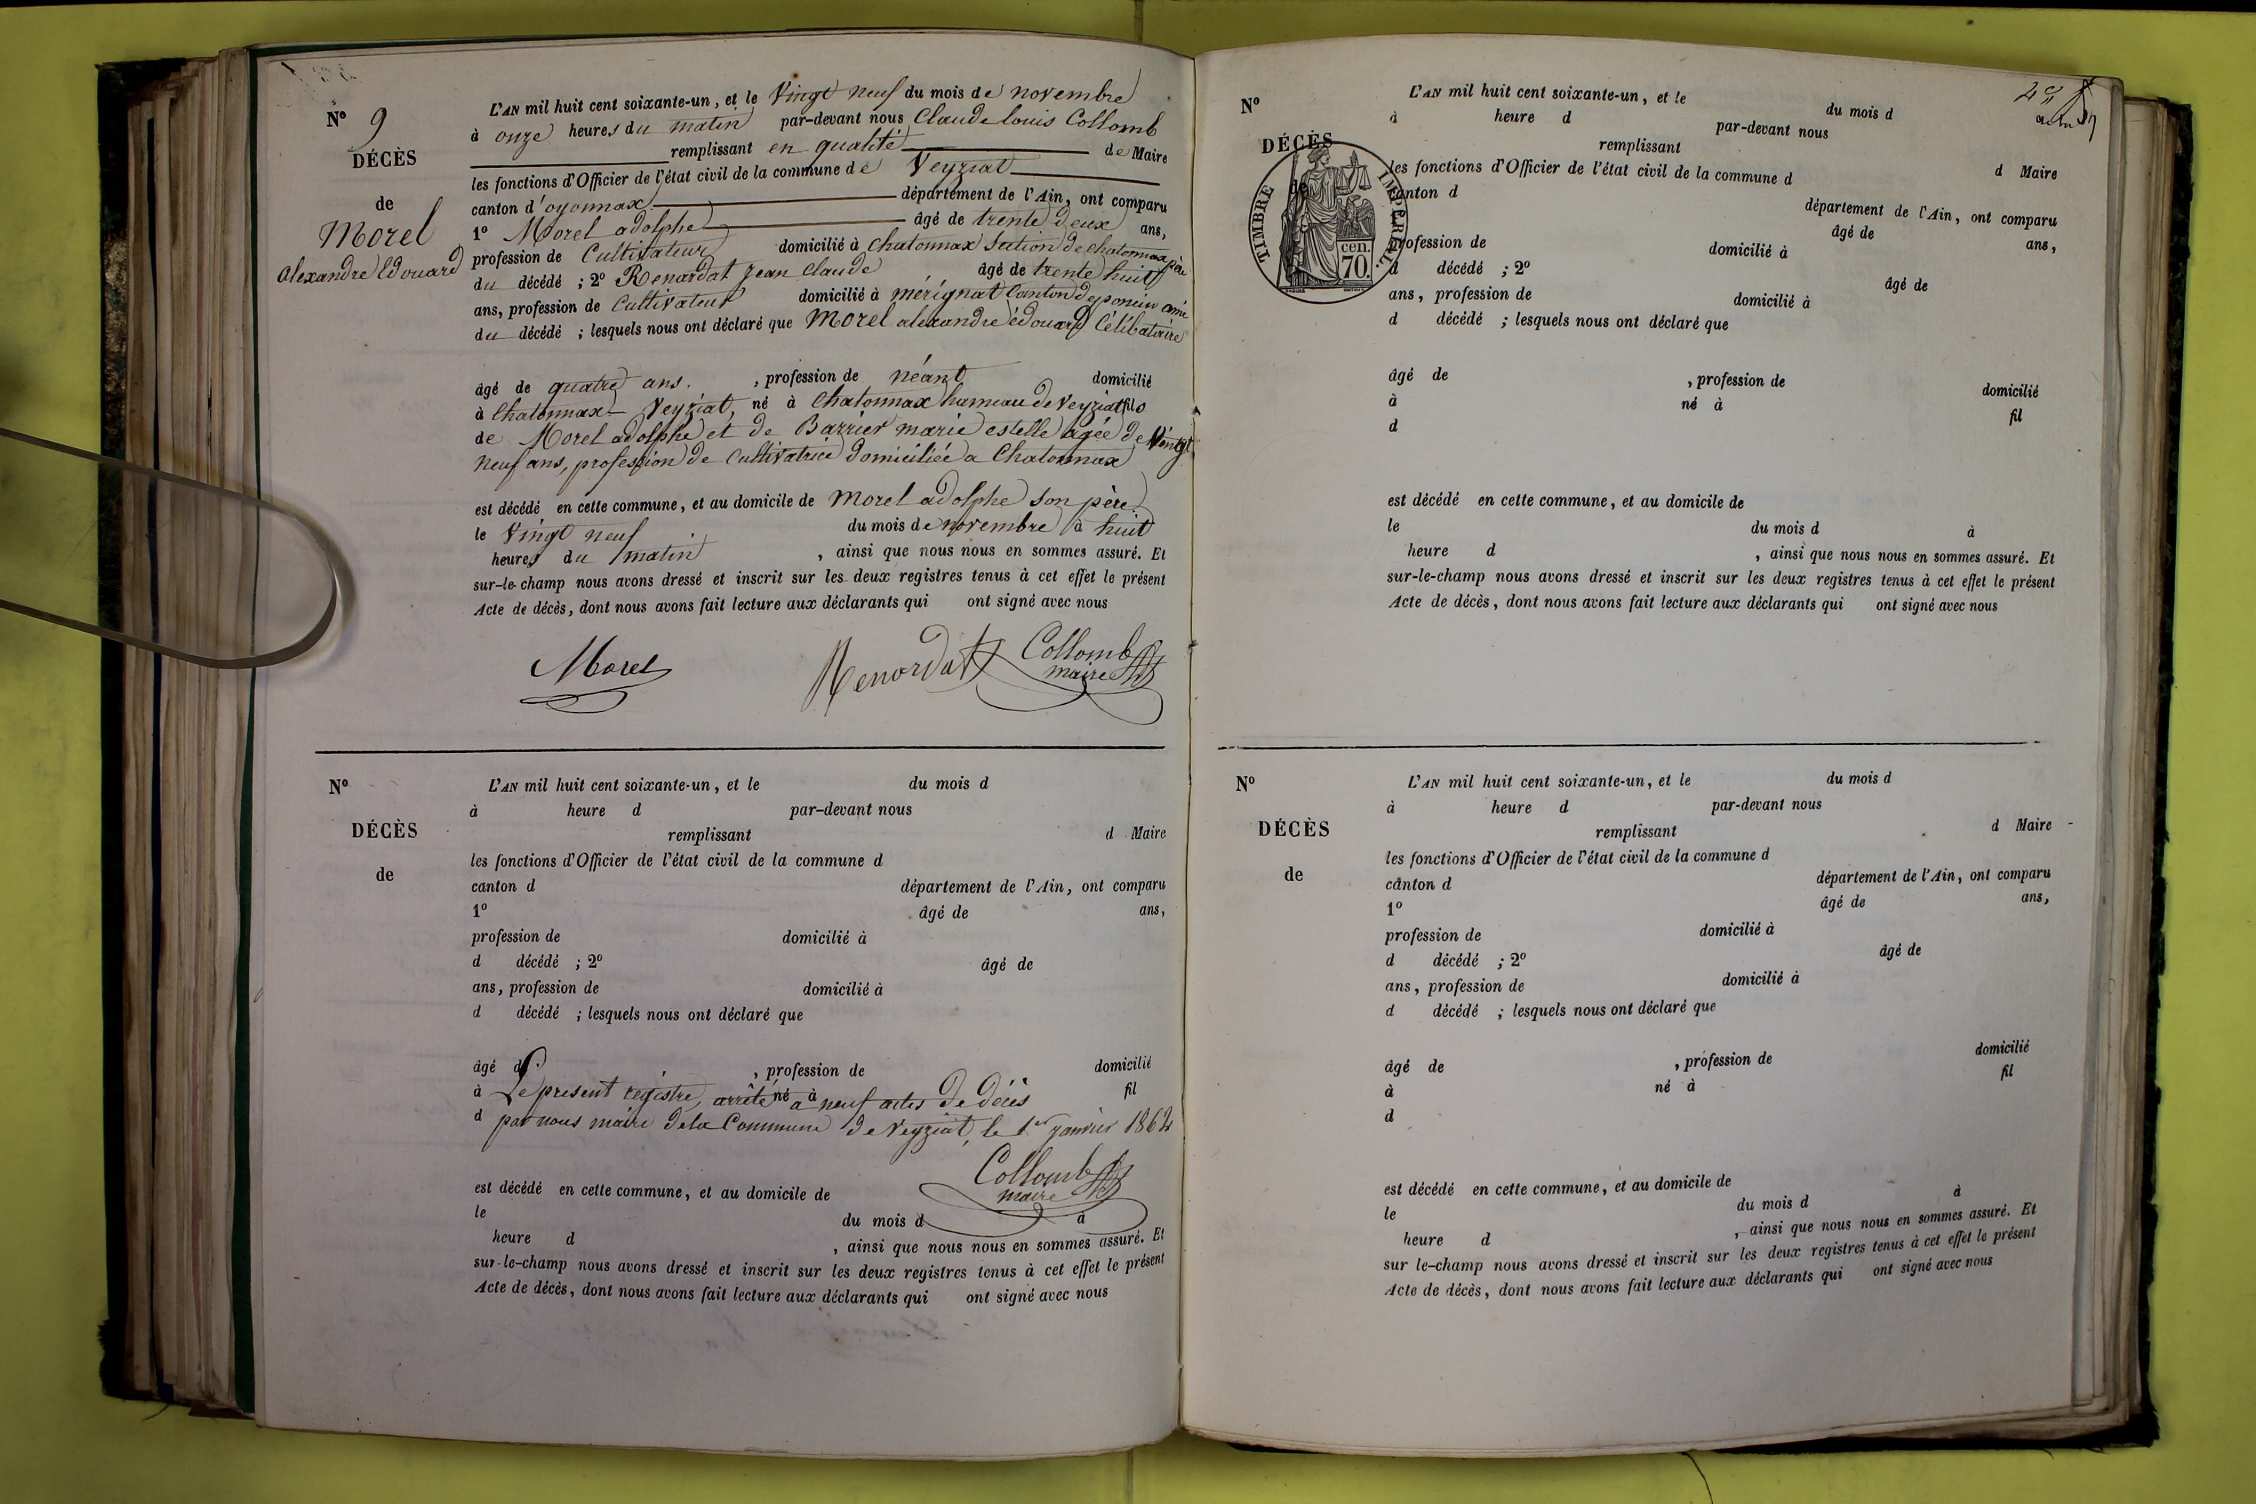 Nº 9
DÉCÈS
de
Morel
alexandre Edouard
L'AN mil huit cent soixante-un, et le Vingt neuf du mois de novembre
à onze heures du matin par-devant nous Claude louis Collomb
remplissant en qualité de Maire
les fonctions d'Officier de l'état civil de la commune de Veyziat
canton d'oyonnax département de l'Ain, ont comparu
1º Morel adolphe âgé de trente deux ans,
profession de Cultivateur domicilié à Chatonnax Section de Chatonnax père
du décédé ; 2º Renardat jean Claude âgé de trente huit
ans, profession de Cultivateur domicilié à mérignat Canton de poncin ami
du décédé ; lesquels nous ont déclaré que Morel alexandre édouard Célibataire
âgé de quatre ans. , profession de néant domicilié
à Chatonnax Veyziat, né à Chatonnax hameau de Veyziat fils
de Morel adolphe et de Barrier marie estelle âgée de Vingt
neuf ans, profession de Cultivatrice domiciliée a Chatonnax
est décédé en cette commune, et au domicile de Morel adolphe son père
le Vingt neuf du mois de novembre à huit
heures du matin , ainsi que nous nous en sommes assuré. Et
sur-le-champ nous avons dressé et inscrit sur les deux registres tenus à cet effet le présent
Acte de décès, dont nous avons fait lecture aux déclarants qui ont signé avec nous
Morel Renardat Collomb
maire
Nº
DÉCÈS
de
L'AN mil huit cent soixante-un, et le du mois d
à heure d par-devant nous
remplissant d Maire
les fonctions d'Officier de l'état civil de la commune d
canton d département de l'Ain, ont comparu
1º âgé de ans,
profession de domicilié à
d décédé ; 2º âgé de
ans, profession de domicilié à
d décédé ; lesquels nous ont déclaré que
âgé d , profession de domicilié
à né à fil
Le present registre, arrêté a neuf actes de décès
d par nous maire de la Commune de Veyziat, le 1er janvier 1862
Collomb
maire
est décédé en cette commune, et au domicile de
le du mois d à
heure d , ainsi que nous nous en sommes assuré. Et
sur-le-champ nous avons dressé et inscrit sur les deux registres tenus à cet effet le présent
Acte de décès, dont nous avons fait lecture aux déclarants qui ont signé avec nous
Nº
DÉCÈS
de
TIMBRE IMPÉRIAL.
cen.
70.
L'AN mil huit cent soixante-un, et le du mois d
à heure d par-devant nous
remplissant d Maire
les fonctions d'Officier de l'état civil de la commune d
canton d département de l'Ain, ont comparu
âgé de ans,
profession de domicilié à
d décédé ; 2º âgé de
ans, profession de domicilié à
d décédé ; lesquels nous ont déclaré que
âgé de , profession de domicilié
à né à fil
d
est décédé en cette commune, et au domicile de
le du mois d à
heure d , ainsi que nous nous en sommes assuré. Et
sur-le-champ nous avons dressé et inscrit sur les deux registres tenus à cet effet le présent
Acte de décès, dont nous avons fait lecture aux déclarants qui ont signé avec nous
Nº
DÉCÈS
de
L'AN mil huit cent soixante-un, et le du mois d
à heure d par-devant nous
remplissant d Maire
les fonctions d'Officier de l'état civil de la commune d
canton d département de l'Ain, ont comparu
1º âgé de ans,
profession de domicilié à
d décédé ; 2º âgé de
ans, profession de domicilié à
d décédé ; lesquels nous ont déclaré que
âgé de , profession de domicilié
à né à fil
d
est décédé en cette commune, et au domicile de
le du mois d à
heure d , ainsi que nous nous en sommes assuré. Et
sur le-champ nous avons dressé et inscrit sur les deux registres tenus à cet effet le présent
Acte de décès, dont nous avons fait lecture aux déclarants qui ont signé avec nous